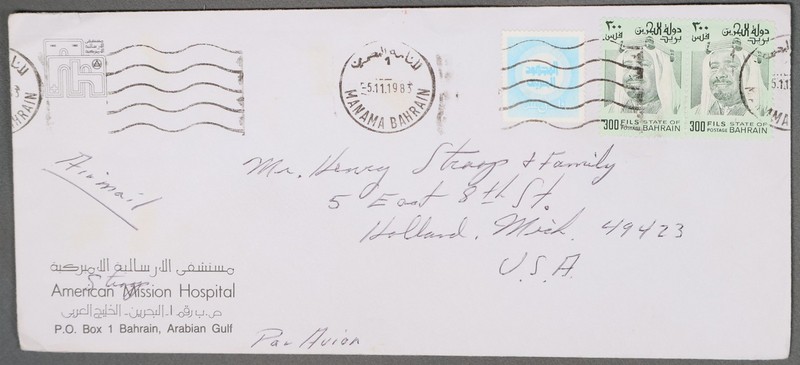 ٣٠٠ فلس
دولة البحرين
بريد
٣٠٠ فلس
دولة البحرين
بريد
BAHRAIN
المنامة البحرين
1
-5.11.1983
MANAMA BAHRAIN
300 FILS STATE OF
POSTAGE BAHRAIN
300 FILS STATE OF
POSTAGE BAHRAIN
5.11
Airmail
Mr. Henry Stroop & Family
5 East 8th St.
Holland, Mich. 49423
U.S.A.
مستشفى الارسالية الامريكية
American Mission Hospital
ص.ب رقم ١ - البحرين - الخليج العربي
P.O. Box 1 Bahrain, Arabian Gulf
Par Avion